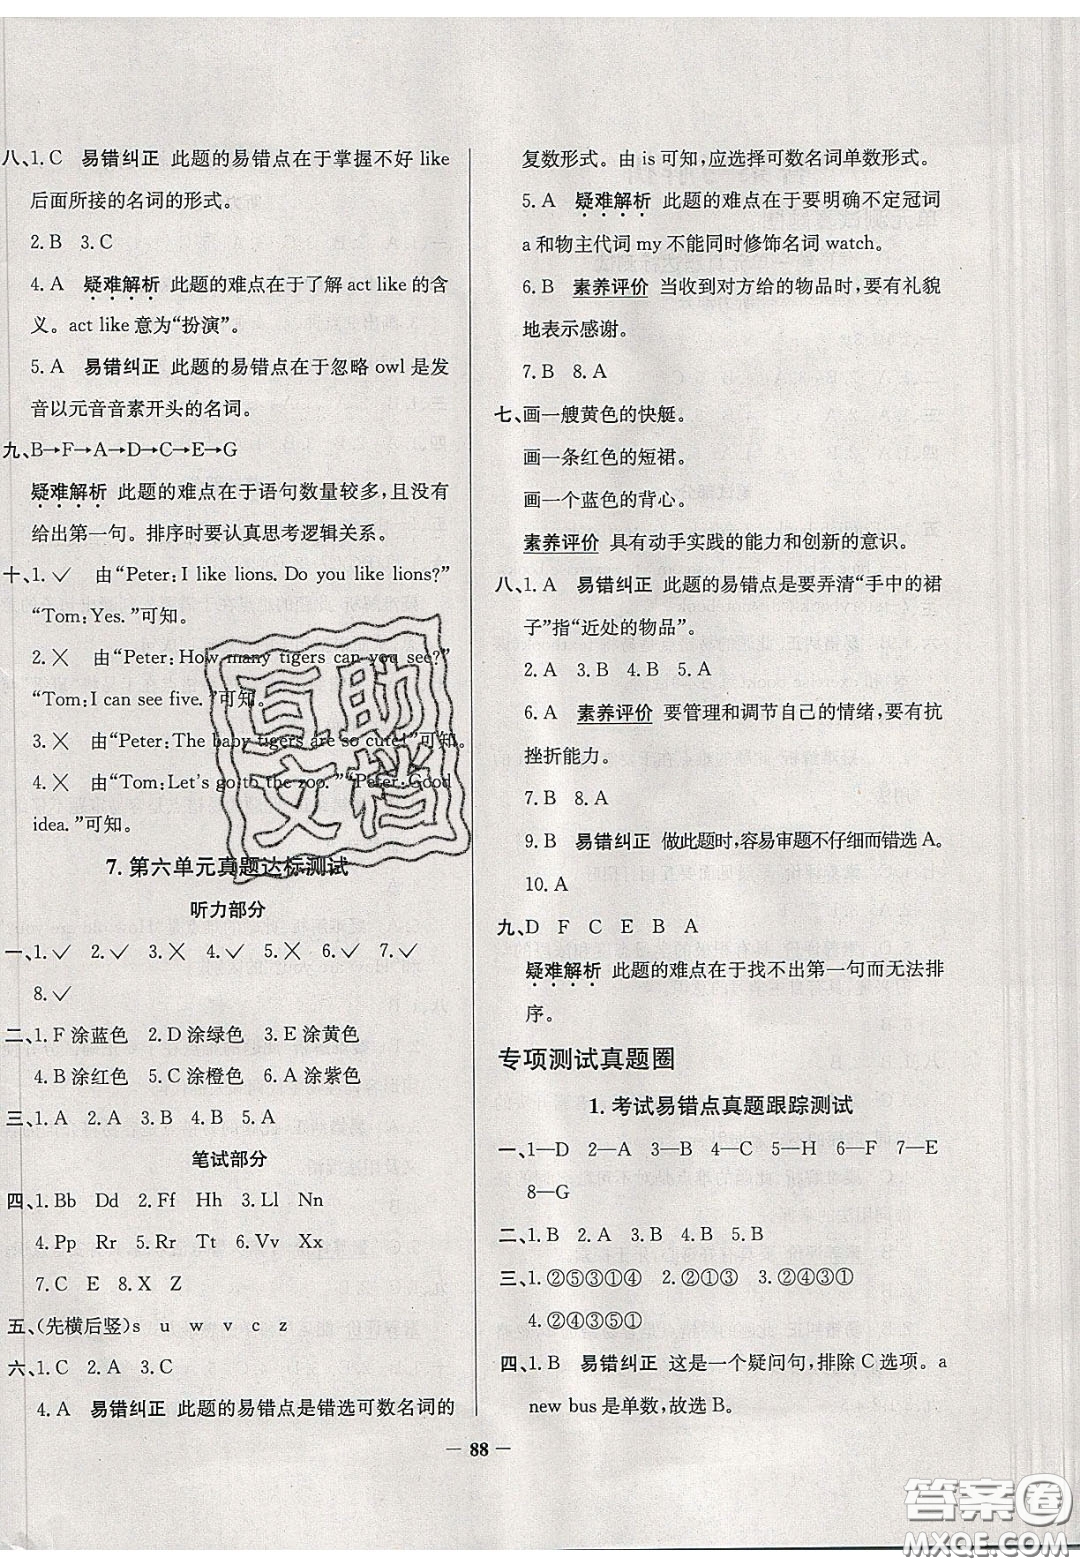 八、1. C 易错纠正 此题的易错点在于掌握不好 like
后面所接的名词的形式。
2. B 3. C
4. A 疑难解析 此题的难点在于了解 act like 的含
义。act like 意为“扮演”。
5. A 易错纠正 此题的易错点在于忽略 owl 是发
音以元音音素开头的名词。
九、B→F→A→D→C→E→G
疑难解析 此题的难点在于语句数量较多,且没有
给出第一句。排序时要认真思考逻辑关系。
十、1. ✓ 由“Peter: I like lions. Do you like lions?”
“Tom: Yes. ”可知。
2. ✕ 由“Peter: How many tigers can you see?”
“Tom: I can see five. ”可知。
3. ✕ 由“Peter: The baby tigers are so cute!”可知。
4. ✕ 由“Tom: Let's go to the zoo. ”“Peter: Good
idea. ”可知。
7. 第六单元真题达标测试
听力部分
一、1. ✓ 2. ✓ 3. ✕ 4. ✓ 5. ✕ 6. ✓ 7. ✓
8. ✓
二、1. F 涂蓝色 2. D 涂绿色 3. E 涂黄色
4. B 涂红色 5. C 涂橙色 6. A 涂紫色
三、1. A 2. A 3. B 4. B 5. A
笔试部分
四、1. Bb Dd 2. Ff Hh 3. Ll Nn
4. Pp Rr 5. Rr Tt 6. Vv Xx
7. C E 8. X Z
五、(先横后竖) s u w v c z
六、1. C 2. A 3. C
4. A 易错纠正 此题的易错点是错选可数名词的
复数形式。由 is 可知,应选择可数名词单数形式。
5. A 疑难解析 此题的难点在于要明确不定冠词
a 和物主代词 my 不能同时修饰名词 watch。
6. B 素养评价 当收到对方给的物品时,要有礼貌
地表示感谢。
7. B 8. A
七、画一艘黄色的快艇。
画一条红色的短裙。
画一个蓝色的背心。
素养评价 具有动手实践的能力和创新的意识。
八、1. A 易错纠正 此题的易错点是要弄清“手中的裙
子”指“近处的物品”。
2. A 3. A 4. B 5. A
6. A 素养评价 要管理和调节自己的情绪,要有抗
挫折能力。
7. B 8. A
9. B 易错纠正 做此题时,容易审题不仔细而错选 A。
10. A
九、D F C E B A
疑难解析 此题的难点在于找不出第一句而无法排
序。
专项测试真题圈
1. 考试易错点真题跟踪测试
一、1—D 2—A 3—B 4—C 5—H 6—F 7—E
8—G
二、1. B 2. A 3. B 4. A 5. B
三、1. ②⑤③①④ 2. ②①③ 3. ②④③①
4. ②④③⑤①
四、1. B 易错纠正 这是一个疑问句,排除 C 选项。a
new bus 是单数,故选 B。
— 88 —
互助
文档
答案圈
MXQE.COM